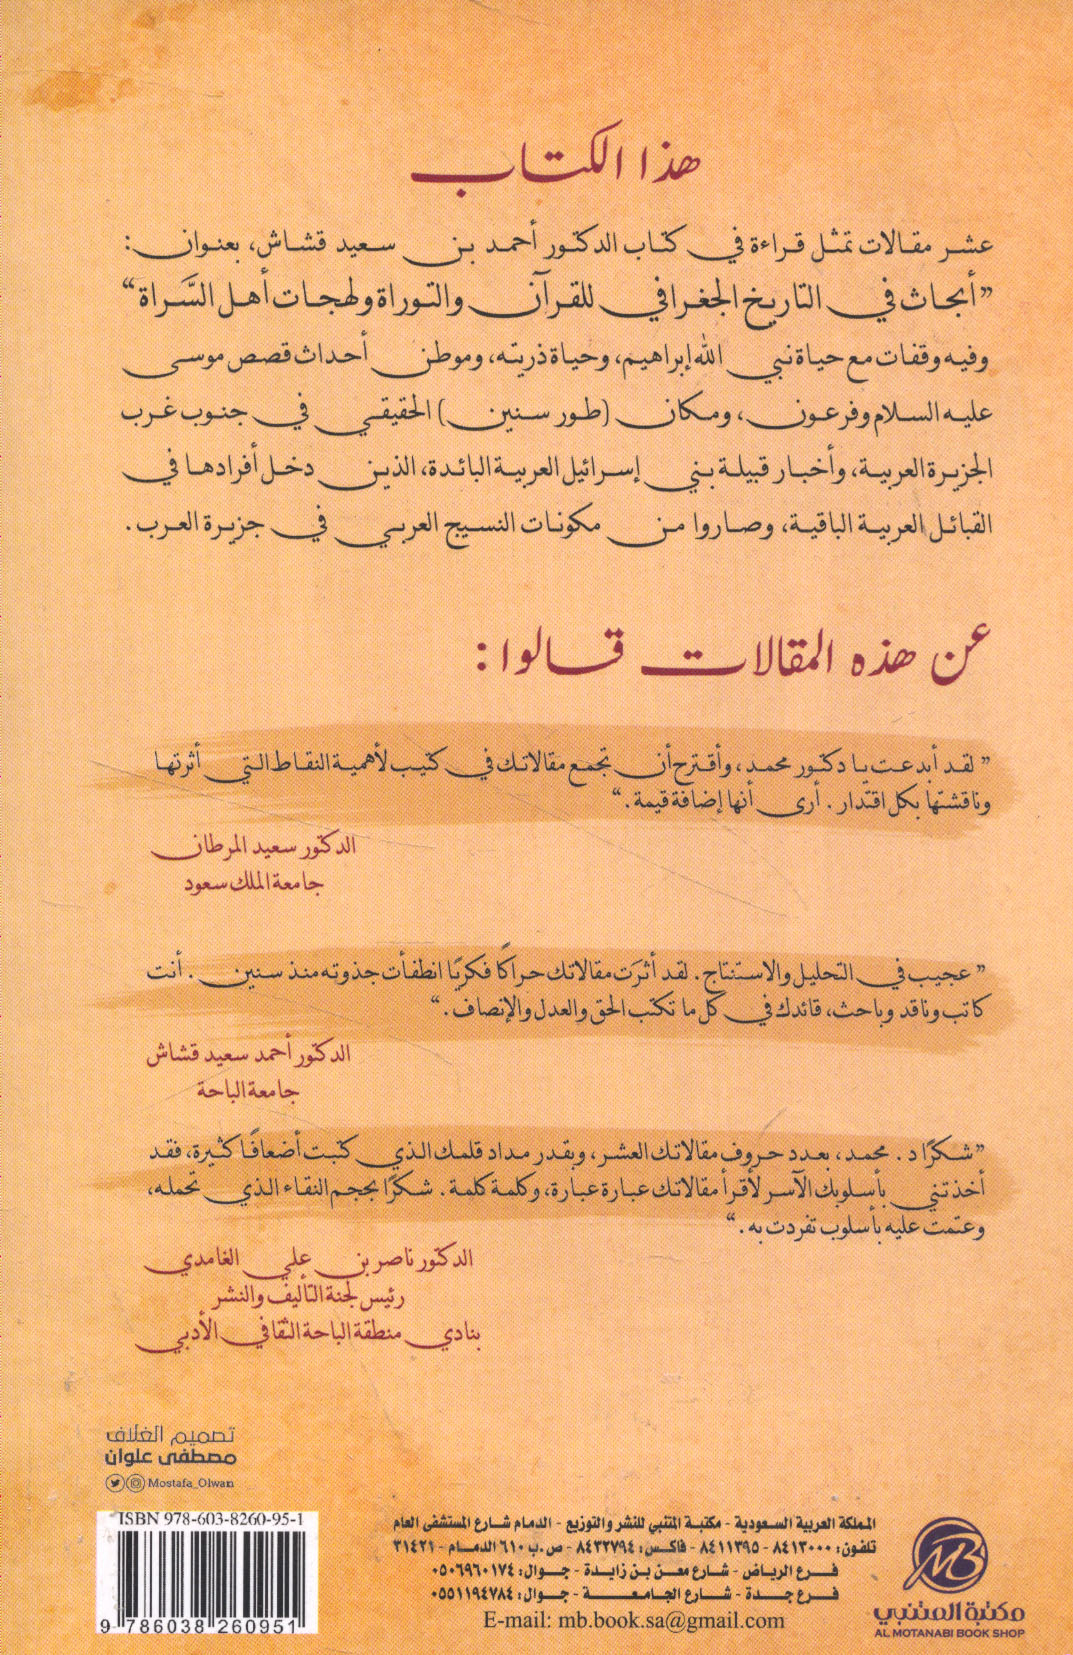 هذا الكتاب
عشر مقالات تمثل قراءة في كتاب الدكتور أحمد بن سعيد قشاش، بعنوان:
”أبحاث في التاريخ الجغرافي للقرآن والتوراة ولهجات أهل السَّراة“
وفيه وقفات مع حياة نبي الله إبراهيم، وحياة ذريته، وموطن أحداث قصص موسى
عليه السلام وفرعون، ومكان (طور سنين) الحقيقي في جنوب غرب
الجزيرة العربية، وأخبار قبيلة بني إسرائيل العربية البائدة، الذين دخل أفرادها في
القبائل العربية الباقية، وصاروا من مكونات النسيج العربي في جزيرة العرب.
عن هذه المقالات قالوا:
” لقد أبدعت يا دكتور محمد، وأقترح أن تجمع مقالاتك في كتيب لأهمية النقاط التي أثرتها
وناقشتها بكل اقتدار. أرى أنها إضافة قيمة.“
الدكتور سعيد المرطان
جامعة الملك سعود
” عجيب في التحليل والاستنتاج. لقد أثرَت مقالاتك حراكًا فكريًا انطفأت جذوته منذ سنين. أنت
كاتب وناقد وباحث، قائدك في كل ما تكتب الحق والعدل والإنصاف.“
الدكتور أحمد سعيد قشاش
جامعة الباحة
”شكرًا د. محمد، بعدد حروف مقالاتك العشر، وبقدر مداد قلمك الذي كتبت أضعافًا كثيرة، فقد
أخذتني بأسلوبك الآسر لأقرأ مقالاتك عبارة عبارة، وكلمة كلمة. شكرًا بحجم النقاء الذي تحمله،
وعتمت عليه بأسلوب تفردت به.“
الدكتور ناصر بن علي الغامدي
رئيس لجنة التأليف والنشر
بنادي منطقة الباحة الثقافي الأدبي
تصميم الغلاف
مصطفى علوان
Mostafa_Olwan
ISBN 978-603-8260-95-1
9 786038 260951
المملكة العربية السعودية - مكتبة المتنبي للنشر والتوزيع - الدمام شارع المستشفى العام
تلفون: ٨٤١٣٠٠٠ - ٨٤١١٣٩٥ - فاكس: ٨٤٣٢٧٩٤ - ص.ب ٦١٠ الدمام - ٣١٤٢١
فرع الرياض - شارع معن بن زايدة - جوال: ٠٥٠٦٩٦٠١٧٤
فرع جدة - شارع الجامعة - جوال: ٠٥٥١١٩٤٧٨٤
E-mail: mb.book.sa@gmail.com
MB
مكتبة المتنبي
AL MOTANABI BOOK SHOP